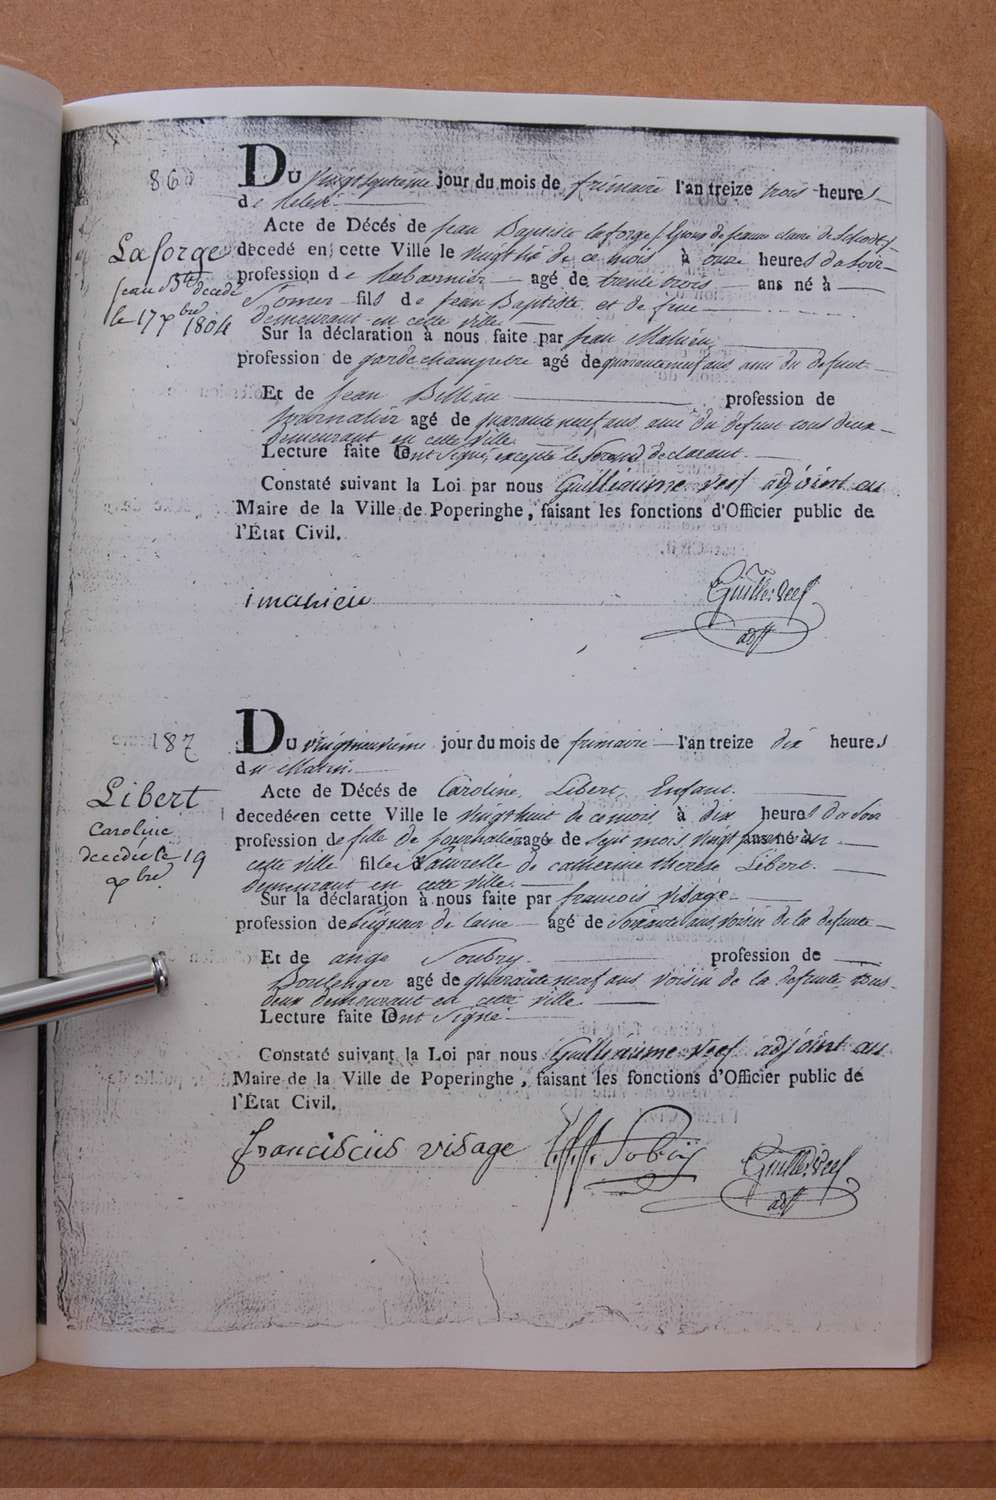 860
Du Vingtsixieme jour du mois de frimaire l'an treize trois heures
de
Laforge
Jean Bte decedé
le 17 xbre 1804
Acte de Décés de Jean Baptiste Laforge Epoux de Jeanne Claire de
decedé en cette Ville le vingtsix de ce mois à onze heures du soir
profession de agé de trente trois ans né à
St omer fils de Jean Baptiste et de feue
demeurant en cette ville.
Sur la déclaration à nous faite par Jean Mahieu
profession de garde champetre agé de quaranteneuf ans ami du defunt
Et de Jean Billiau profession de
journalier agé de quarante neuf ans ami du defunt tous deux
demeurant en cette ville.
Lecture faite ont signé, excepté le second declarant.
Constaté suivant la Loi par nous Guilliaume Veef adjoint au
Maire de la Ville de Poperinghe, faisant les fonctions d'Officier public de
l'État Civil.
i mahieu
Guille: Veef
adjt
187
Du vingtneuvieme jour du mois de frimaire l'an treize dix heures
du Matin.
Libert
Caroline
decedée le 19
xbre
Acte de Décés de Caroline Libert Enfant.
decedée en cette Ville le vingthuit de ce mois, à dix heures du soir
profession de fille de journalier agé de sept mois vingt jours né à en
cette ville fille Naturelle de catherine therese Libert.
demeurant en cette ville.
Sur la déclaration à nous faite par francois visage
profession de Peigneur de laine agé de Soixante ans, voisin de la defunte
Et de ange Soubry. profession de
Boulenger agé de quarante neuf ans voisin de la defunte tous
deux demeurant en cette ville.
Lecture faite ont Signé
Constaté suivant la Loi par nous Guilliaume Veef adjoint au
Maire de la Ville de Poperinghe, faisant les fonctions d'Officier public de
l'État Civil.
franciscus visage
Guille: Veef
adjt